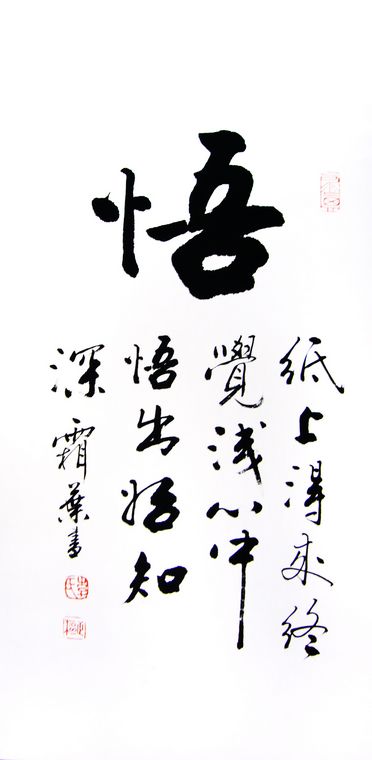 悟
紙上得来終
覺淺心中
悟出始知
深
霜葉書